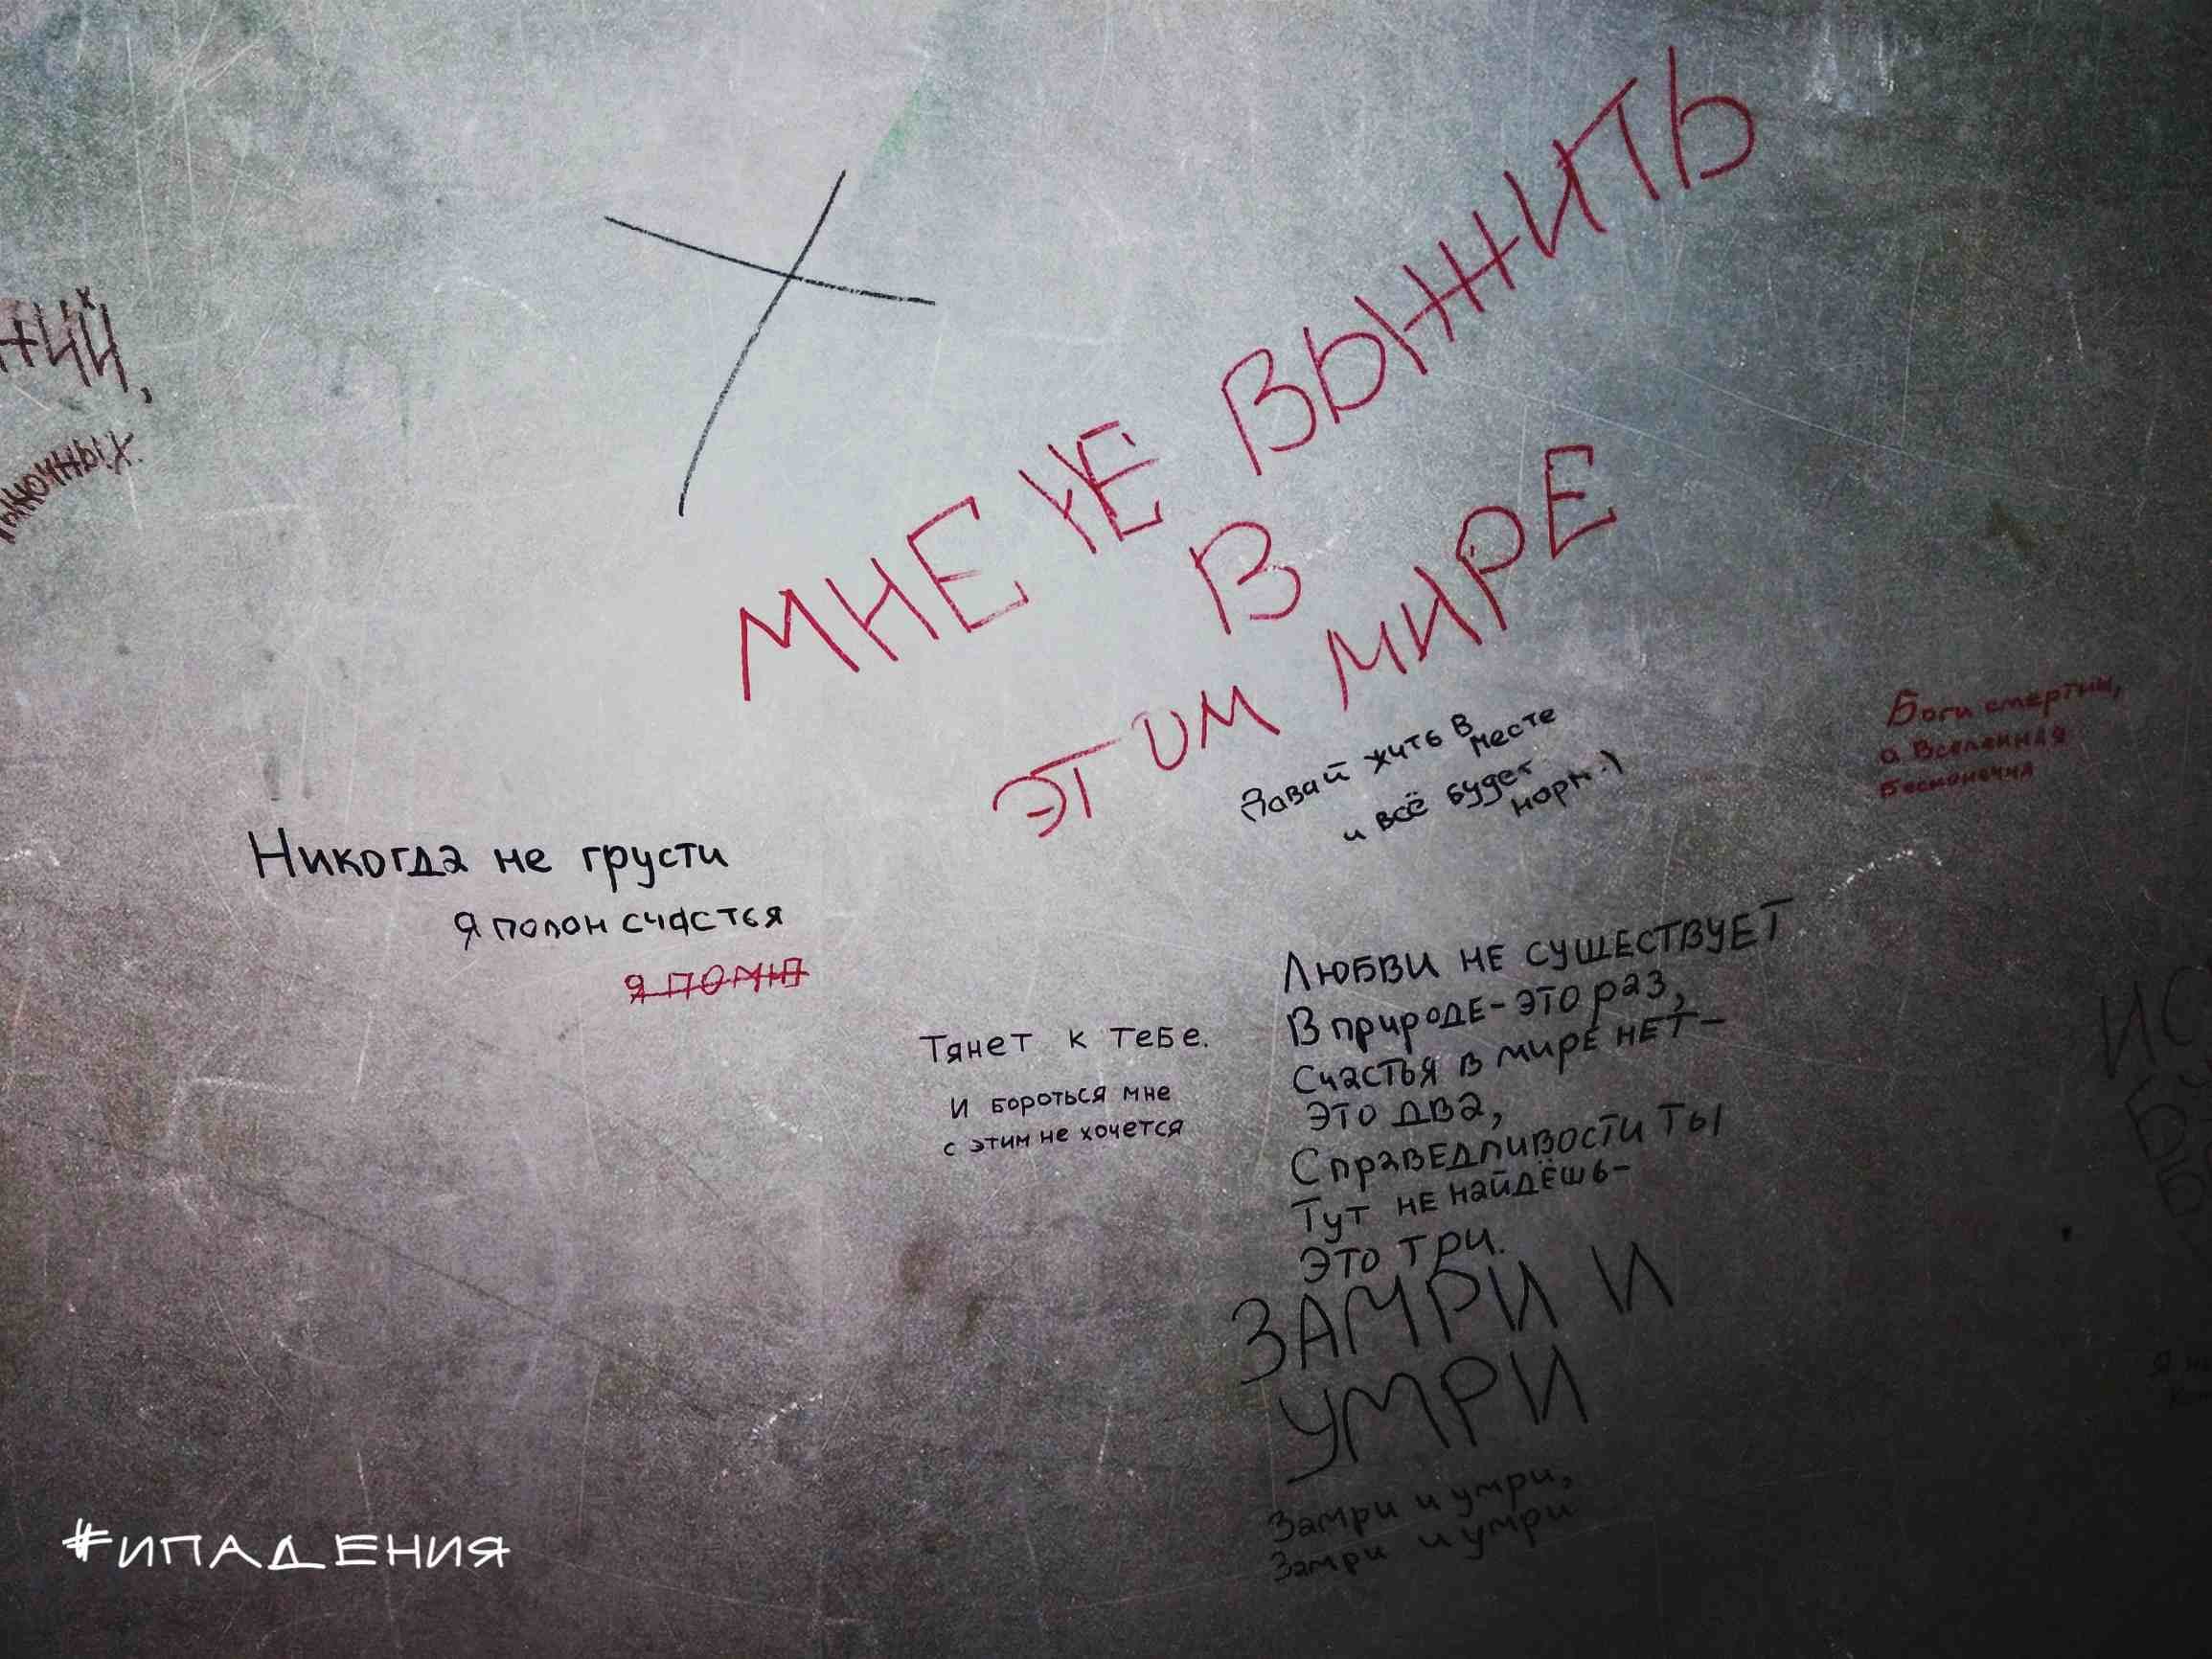 МНЕ НЕ ВЫЖИТЬ
В
ЭТОМ МИРЕ
Давай жить в
месте
и всё будет
норм.)
Боги смертны,
а Вселенная
бесконечна
Никогда не грусти
Я полон счастья
Я ПОМНЯ
Тянет к тебе.
И бороться мне
с этим не хочется
Любви не существует
В природе - это раз,
Счастья в мире нет -
Это два,
Справедливости ты
Тут не найдёшь -
Это три.
ЗАМРИ И
УМРИ
Замри и умри,
Замри и умри
#ИПАДЕНИЯ